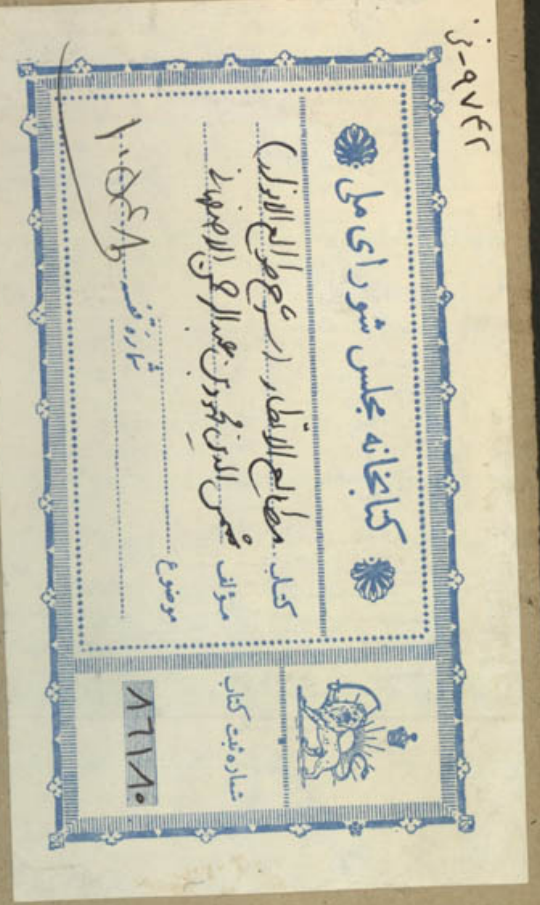 کتابخانه مجلس شورای ملی
کتاب مطالع الانظار (شرح طوالع الانوار)
مؤلف شمس الدین محمود بن عبدالرحمن الاصفهانی
موضوع
شماره قفسه ۱۰۵۴۸
شماره ثبت کتاب
۸۶۱۸۰